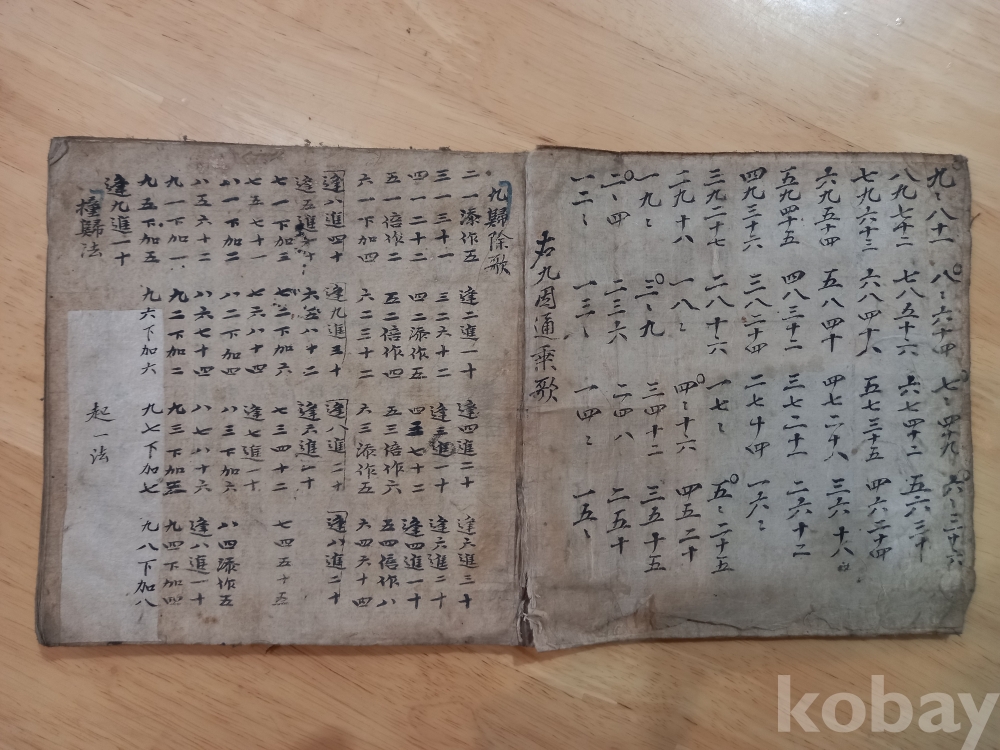 九〻八十一 八〻六十四 七〻四十九 六〻三十六
八九七十二 七八五十六 六七四十二 五六三十
七九六十三 六八四十八 五七三十五 四六二十四
六九五十四 五八四十 四七二十八 三六十八
五九四十五 四八三十二 三七二十一 二六十二
四九三十六 三八二十四 二七十四 一六〻
三九二十七 二八十六 一七〻 五〻二十五
二九十八 一八〻 四〻十六 四五二十
一九〻 三〻九 三四十二 三五十五
二〻四 二三六 二四八 二五十
一二〻 一三〻 一四〻 一五〻
右九因通乘歌
九歸除歌
二一添作五 逢二進一十 逢四進二十 逢六進三十
三一三十一 三二六十二 逢三進一十 逢六進二十
四一二十二 四二添作五 四三七十二 逢四進一十
五一倍作二 五二倍作四 五三倍作六 五四倍作八
六一下加四 六二三十二 六三添作五 六四六十四
逢八進四十 逢九進三十 逢八進二十 逢八進二十
逢五進十 六五八十二 逢六進一十
七一下加三 七二下加六 七三四十二 七四五十五
七五七十一 七六八十四 逢七進一十
八一下加二 八二下加四 八三下加六 八四添作五
八五六十二 八六七十四 八七八十六 逢八進一十
九一下加一 九二下加二 九三下加三 九四下加四
九五下加五 九六下加六 九七下加七 九八下加八
逢九進一十
撞歸法 起一法
kobay